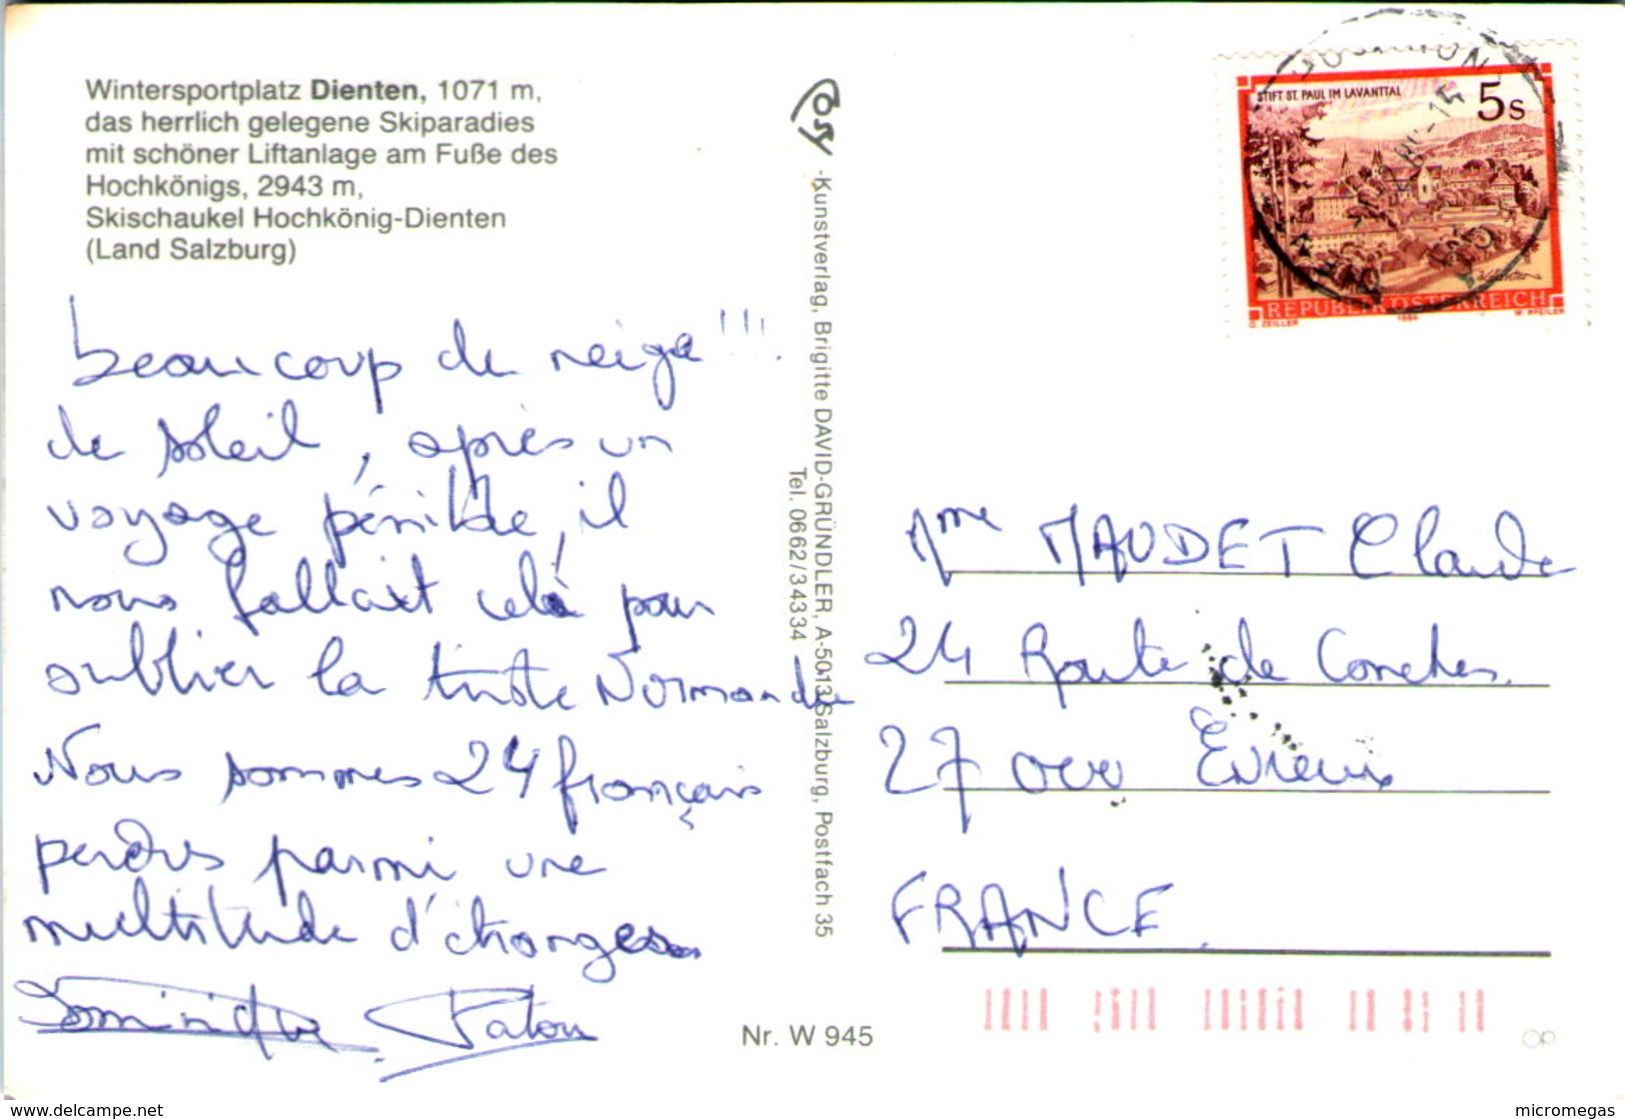 Wintersportplatz Dienten, 1071 m,
das herrlich gelegene Skiparadies
mit schöner Liftanlage am Fuße des
Hochkönigs, 2943 m,
Skischaukel Hochkönig-Dienten
(Land Salzburg)
beaucoup de neige !!!
de soleil, après un
voyage pénible, il
nous fallait celà pour
oublier la triste Normandie
Nous sommes 24 français
perdus parmi une
multitude d'étrangers
Dominique Patou
Cosy
-Kunstverlag, Brigitte DAVID-GRÜNDLER, A-5013 Salzburg, Postfach 35
Tel. 0662/34334
Nr. W 945
STIFT ST. PAUL IM LAVANTTAL
5s
REPUBLIK ÖSTERREICH
O. ZEILLER
W. PFEILER
Mme MAUDET Claude
24 Route de Conches
27 000 Evreux
FRANCE
www.delcampe.net
micromegas